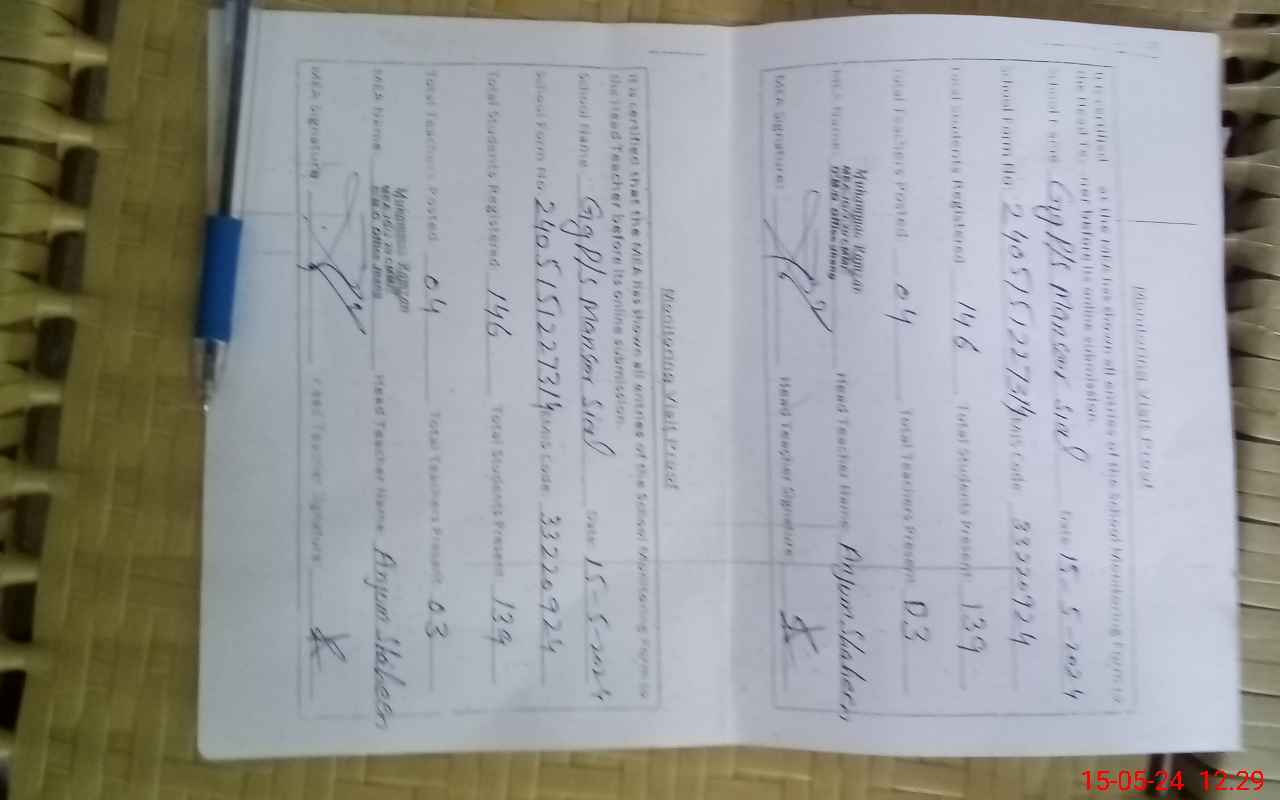 Monitoring Visit Proof
It is certified that the MEA has shown all entries of the School Monitoring Form to
the Head Teacher before its online submission.
School Name Ggp/s Mansoor Sial Date: 15-5-2024
School Form No: 2405151227314 EMIS Code 33220924
Total Students Registered 146 Total Students Present 139
Total Teachers Posted 04 Total Teachers Present 03
MEA Name: Muhammad Ramzan Head Teacher Name: Anjum Shaheen
Office Jhang
MEA Signature: Head Teacher Signature
Monitoring Visit Proof
It is certified that the MEA has shown all entries of the School Monitoring Form to
the Head Teacher before its online submission.
School Name Ggp/s Mansoor Sial Date: 15-5-2024
School Form No: 2405151227314 EMIS Code 33220924
Total Students Registered 146 Total Students Present 139
Total Teachers Posted 04 Total Teachers Present 03
MEA Name Muhammad Ramzan Head Teacher Name: Anjum Shaheen
Office Jhang
MEA Signature Head Teacher Signature
15-05-24 12.29